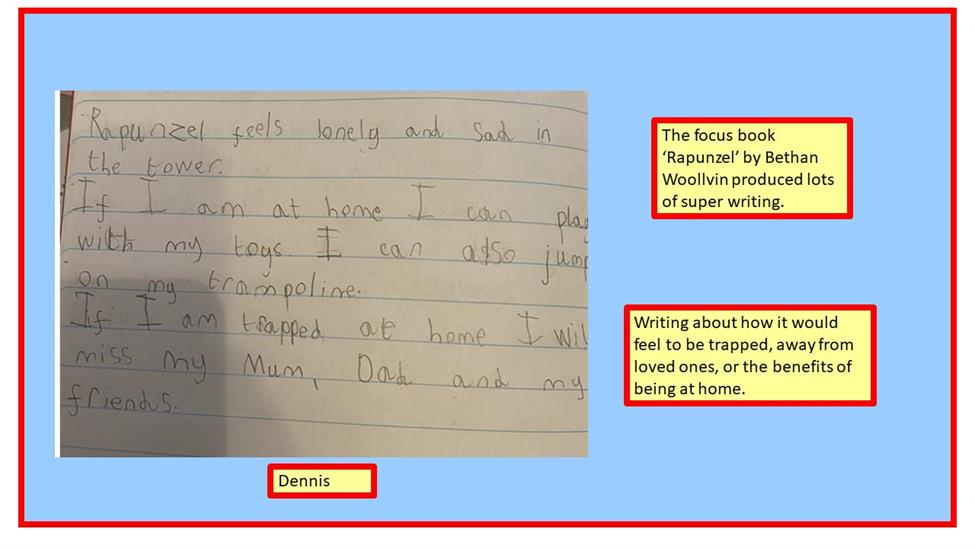 Rapunzel feels lonely and sad in
the tower.
If I am at home I can play
with my toys. I can also jump
on my trampoline.
If I am trapped at home I wil
miss my Mum, Dad and my
friends.
The focus book
‘Rapunzel’ by Bethan
Woollvin produced lots
of super writing.
Writing about how it would
feel to be trapped, away from
loved ones, or the benefits of
being at home.
Dennis